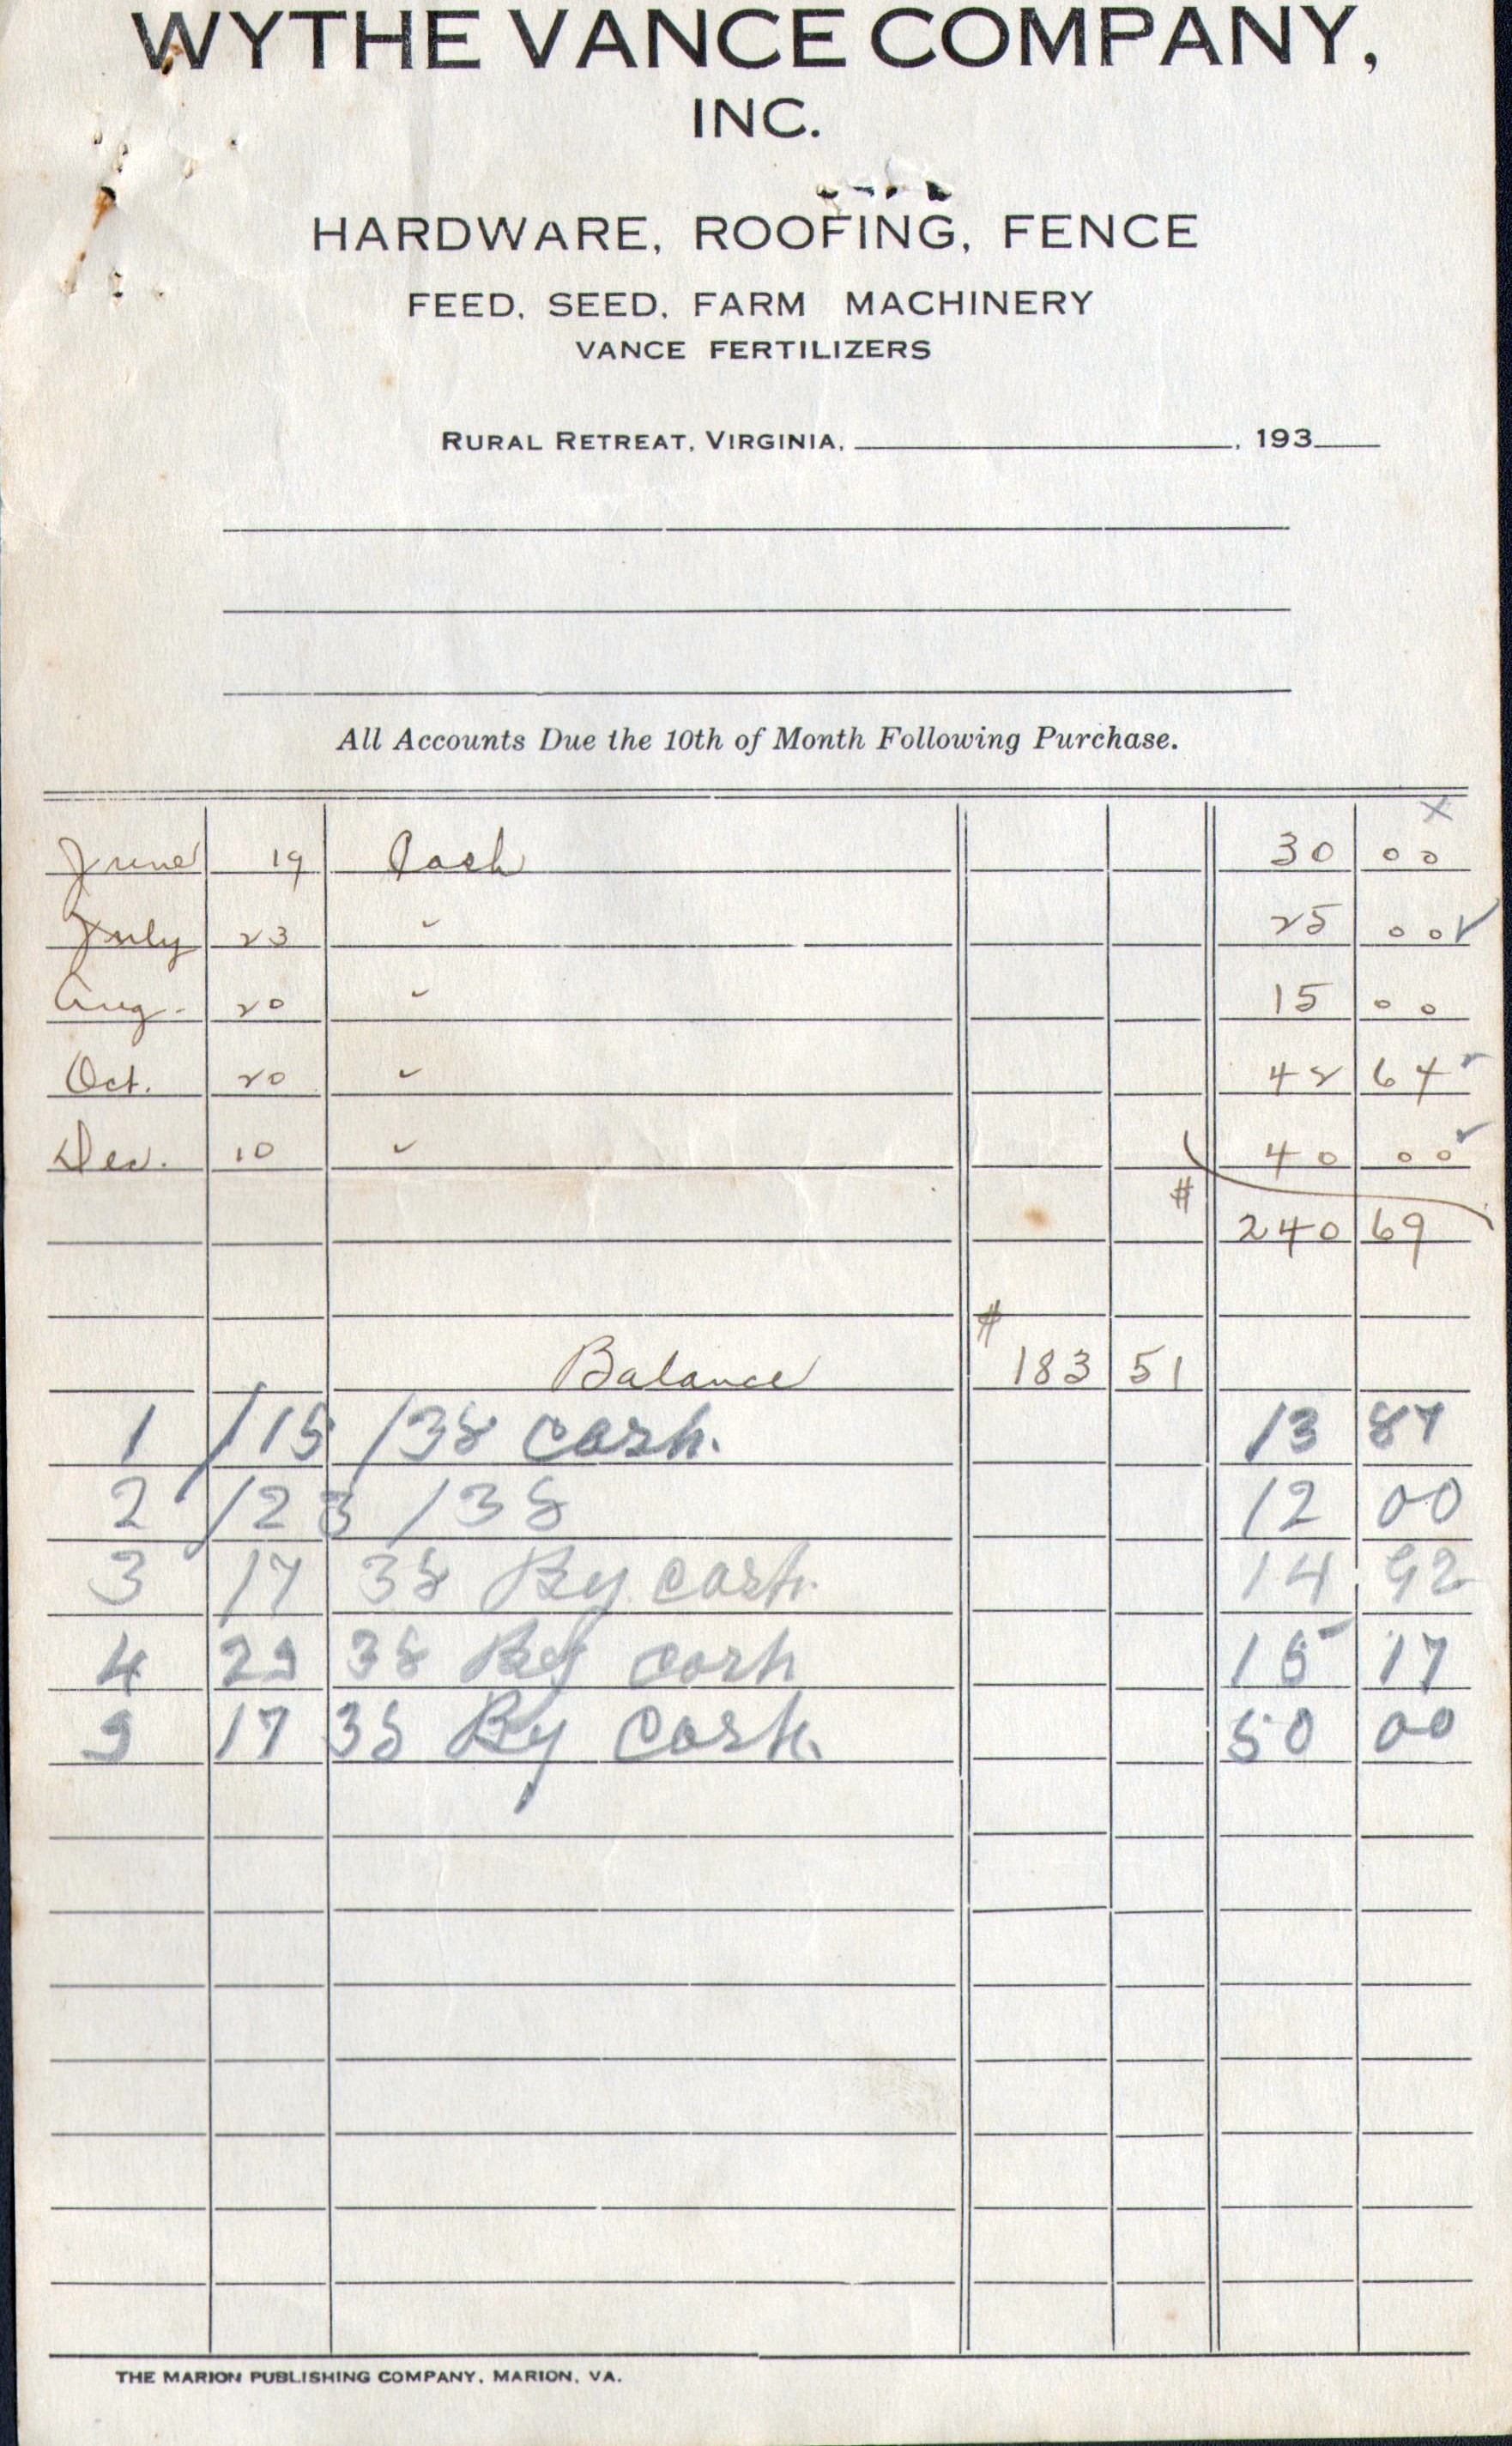 WYTHE VANCE COMPANY,
INC.
HARDWARE, ROOFING, FENCE
FEED, SEED, FARM MACHINERY
VANCE FERTILIZERS
RURAL RETREAT, VIRGINIA, , 193
All Accounts Due the 10th of Month Following Purchase.
June 19 Cash 30 00 x
July 23 " 25 00 ✓
Aug. 20 " 15 00
Oct. 20 " 48 64 ✓
Dec. 10 " 40 00 ✓
# 240 69
Balance # 183 51
1/15/38 cash. 13 87
2/23/38 12 00
3 17 38 By cash. 14 92
4 29 38 By cash 15 17
9 17 38 By Cash. 50 00
THE MARION PUBLISHING COMPANY, MARION, VA.